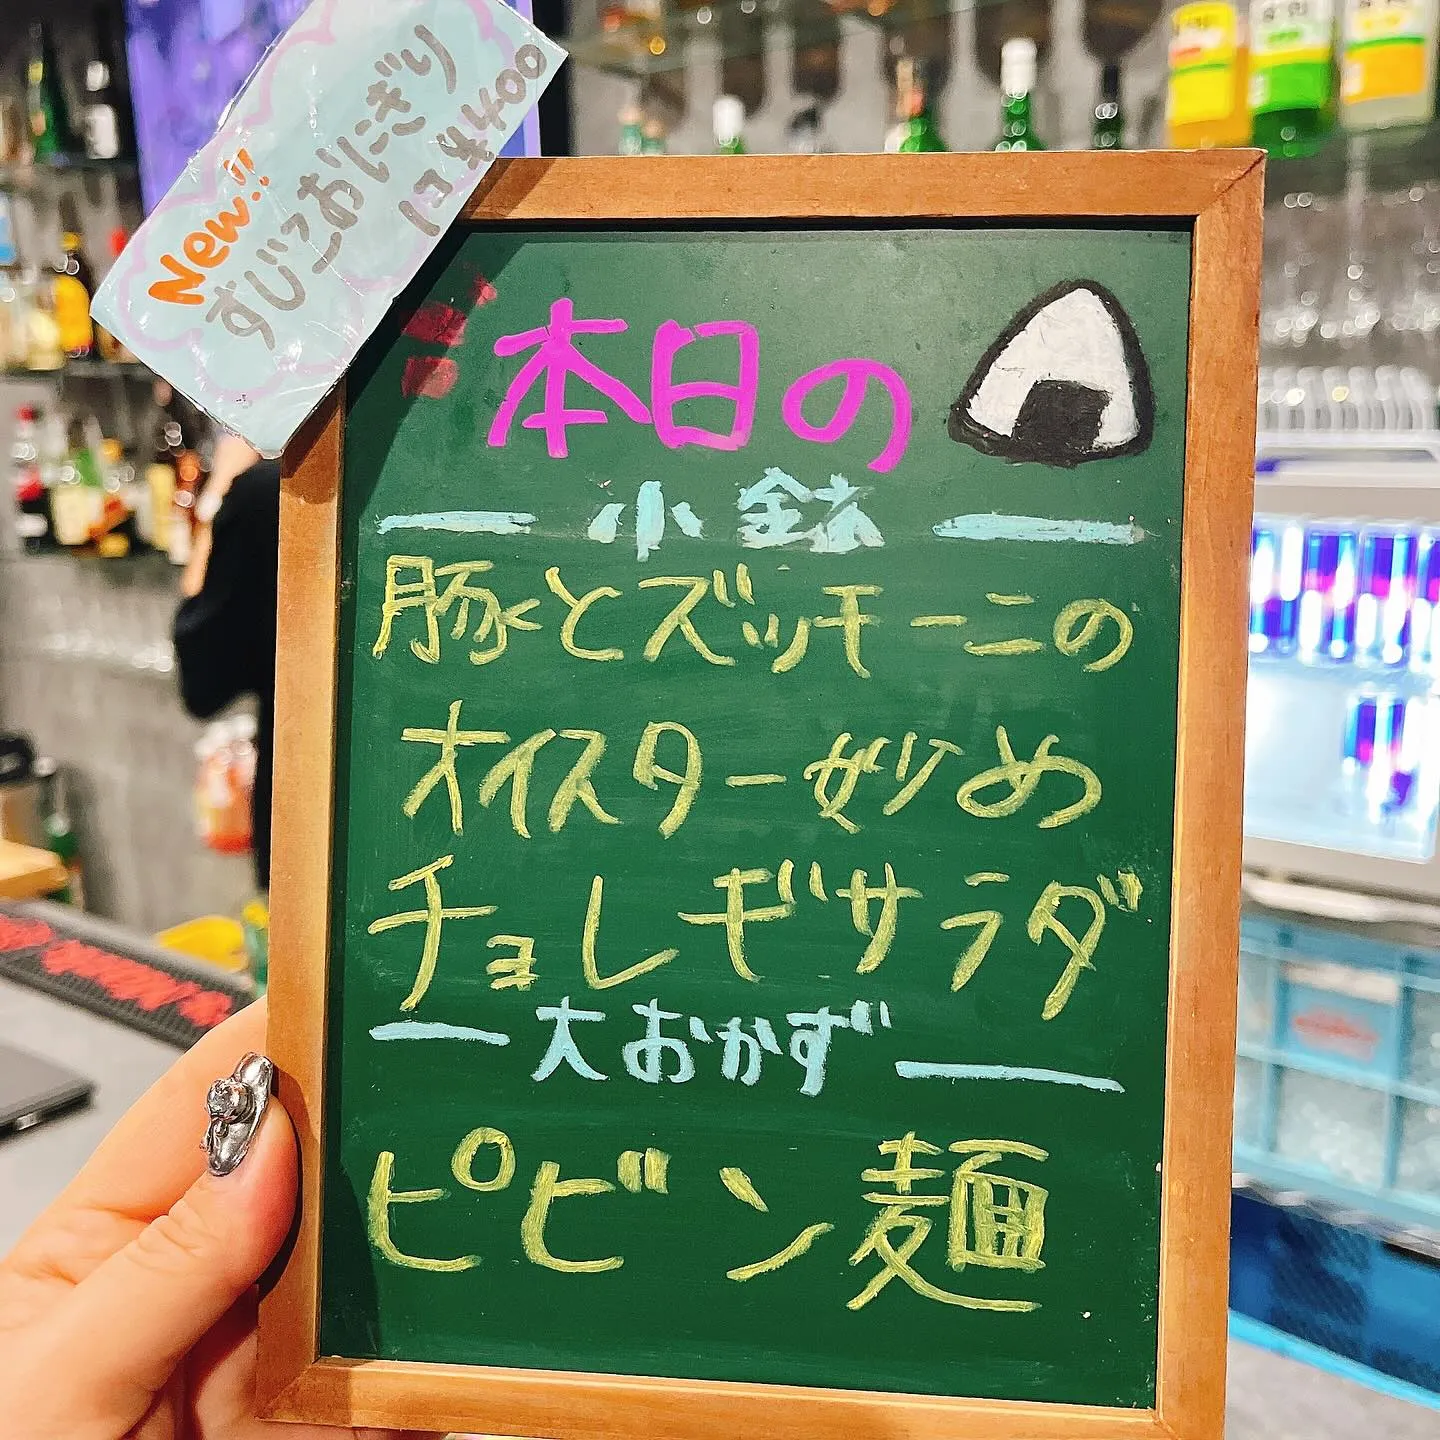 New!!
すじこおにぎり
1コ ¥400
本日の
小鉢
豚とズッキーニの
オイスター炒め
チョレギサラダ
大おかず
ピビン麺